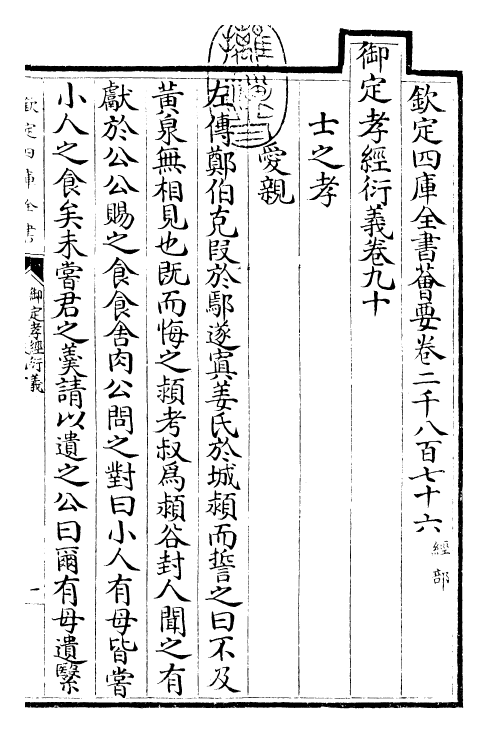 欽定四庫全書薈要卷二千八百七十六 經部
御定孝經衍義卷九十
士之孝
愛親
左傳鄭伯克段於鄢遂寘姜氏於城潁而誓之曰不及
黃泉無相見也既而悔之潁考叔爲潁谷封人聞之有
獻於公公賜之食食舍肉公問之對曰小人有母皆嘗
小人之食矣未嘗君之羮請以遺之公曰爾有母遺繄
欽定四庫全書
御定孝經衍義
一